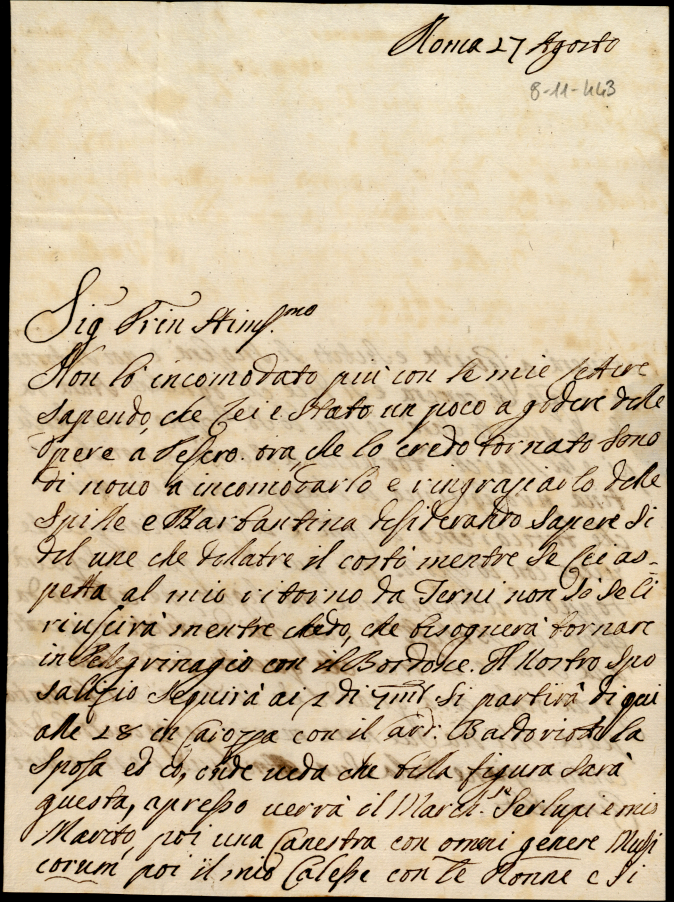 Roma 27 Agosto
8-11-443
Sig Prin Stimss.mo
Non lò incomodato più con le mie lettere
sapendo, che Lei e stato un poco a godere delle
opere a Pescro. ora, che lo credo tornato sono
di novo a incomodarlo e ringraziarlo delle
Spille e Barbantina desiderando sapere si
del une che delatre il costo mentre se Lei as=
petta al mio ritorno da Terni non sò se li
riuscirà mentre chedo, che bisognerà tornare
in Pelegrinagio con il Bordone. Il Nostro Spo
salizio seguirà ai 2 di si partirà di qui
alle 28 in Carozza con il la
Sposa ed io, onde veda che bella figura sarà
questa, apresso verrà il March.se Serlupi e mio
Marito, poi una Canestra con omni genere Mussi
corum poi il mio Calesse con le Donne e Si